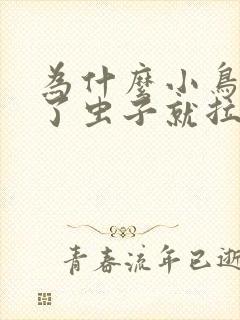 為什麼小鳥
了虫子就拉
青春流年已逝